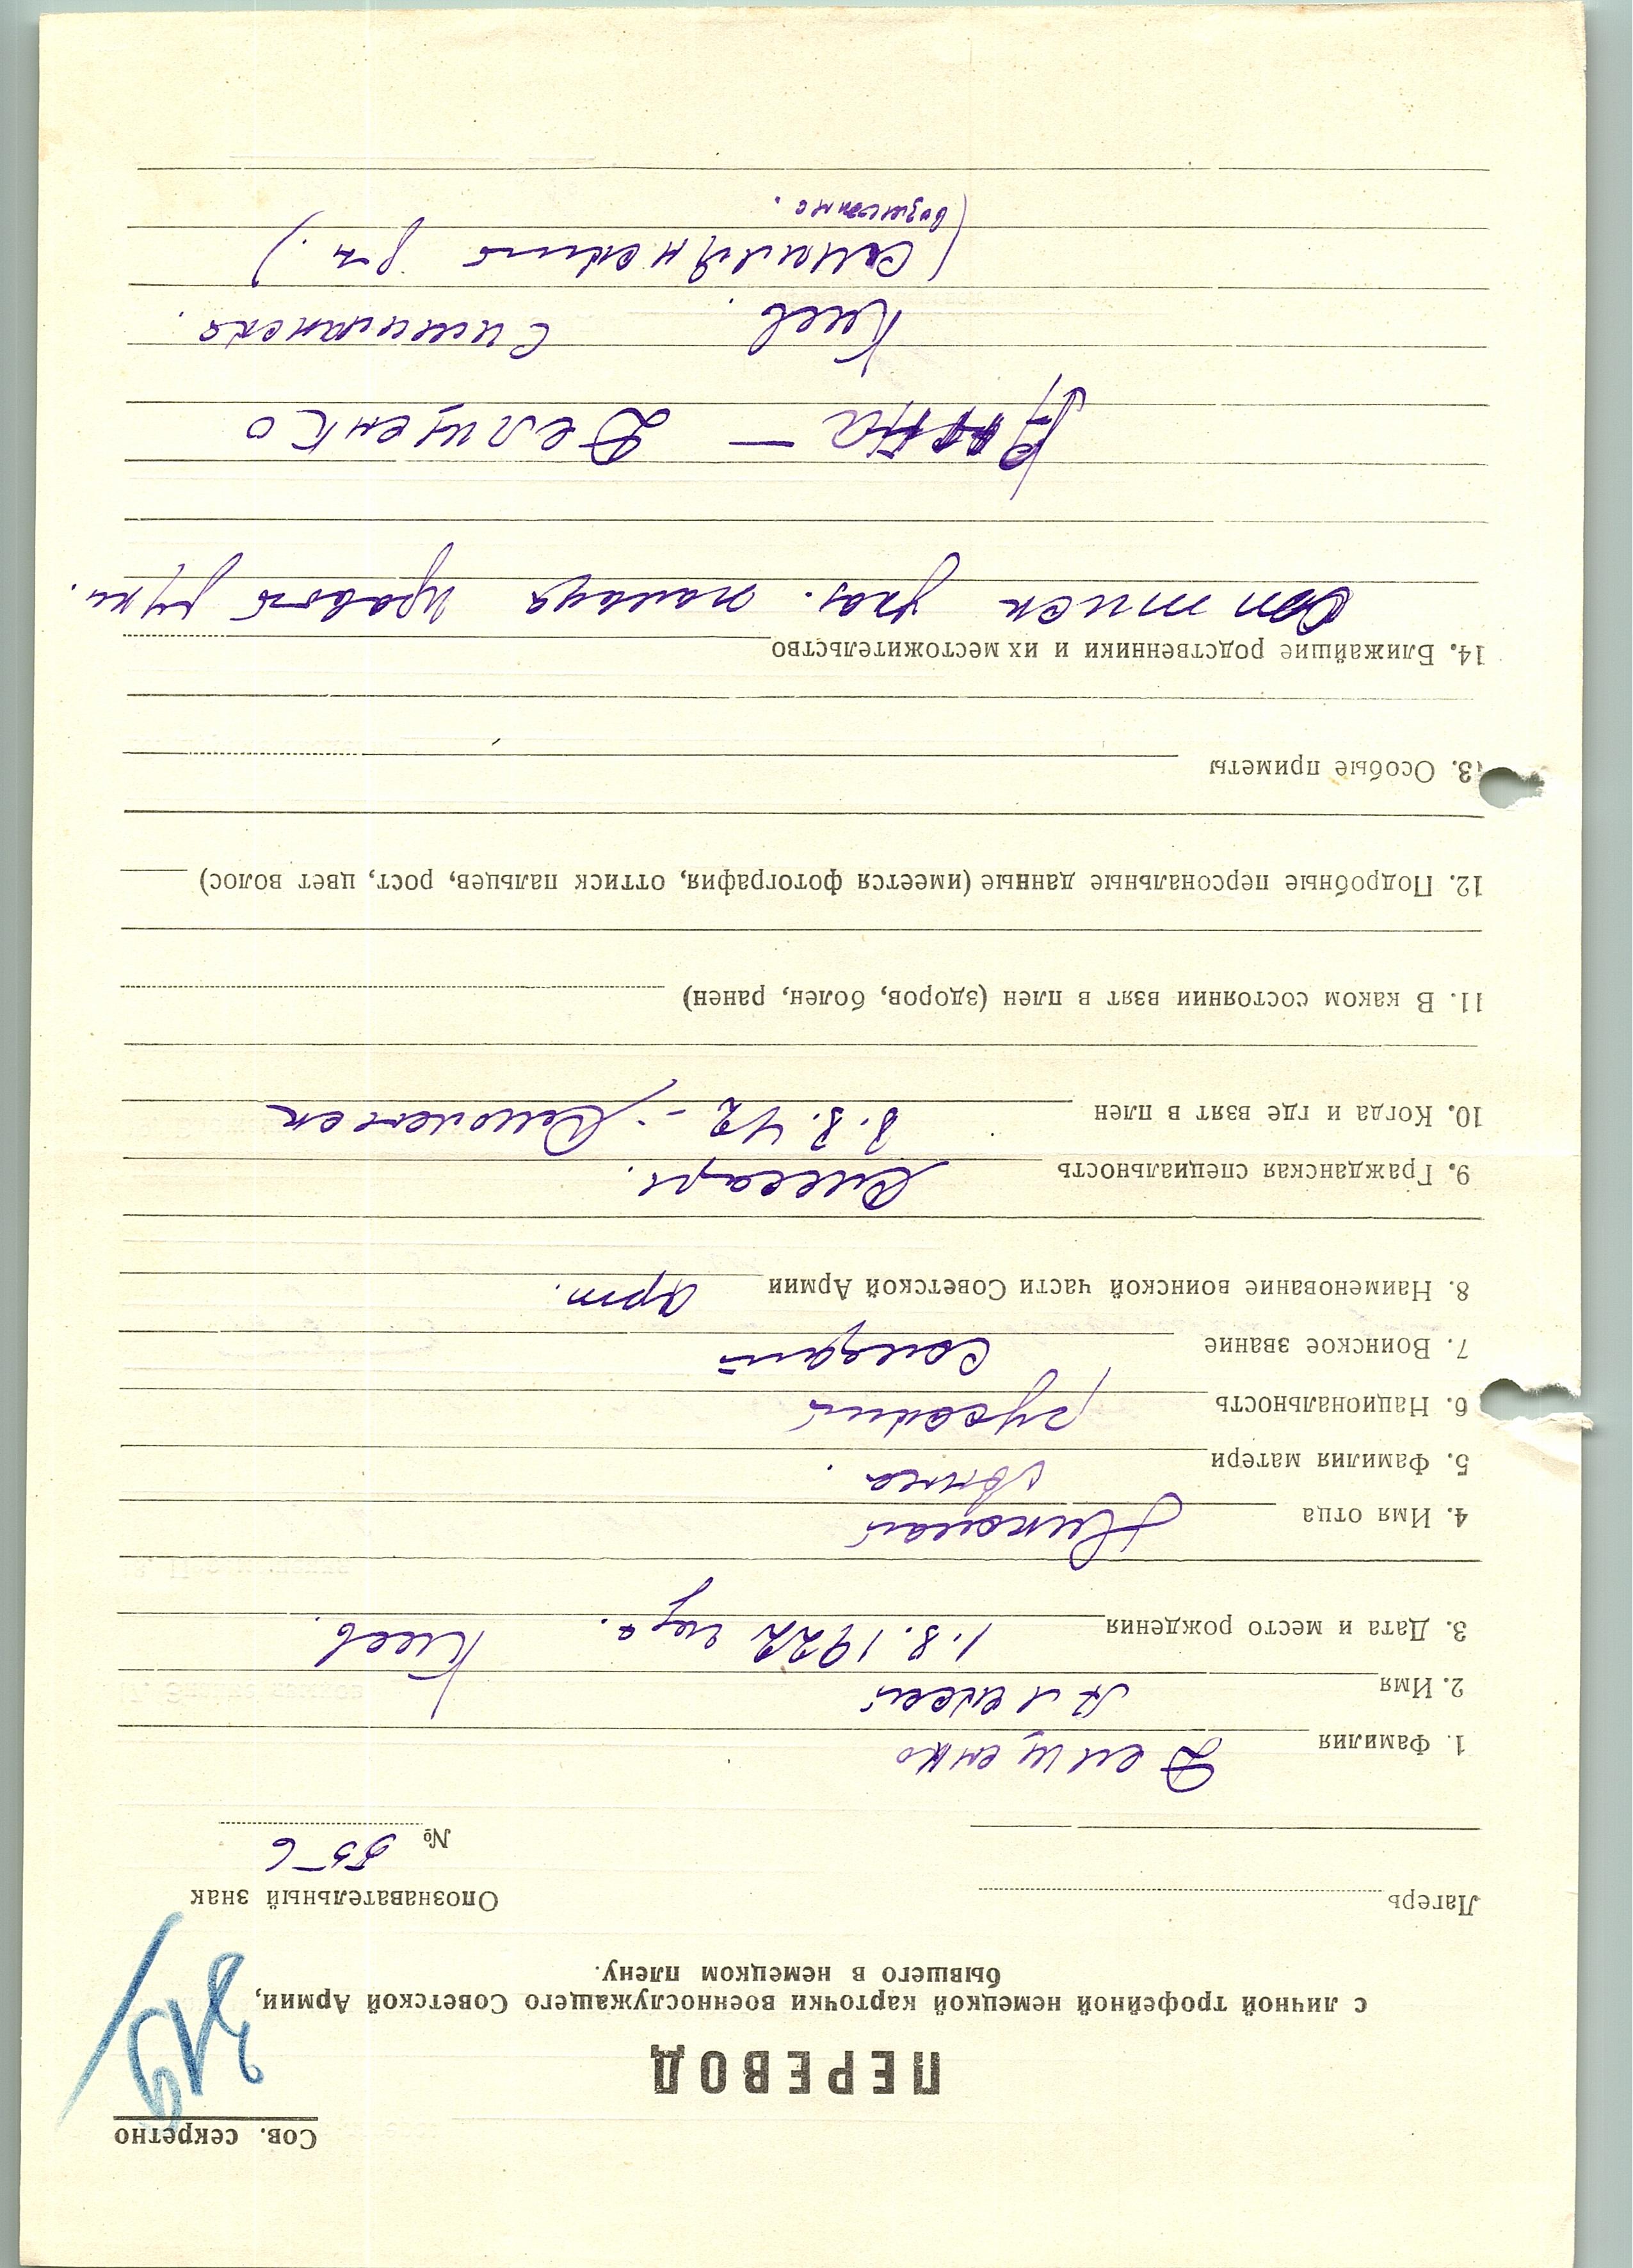 Сов. секретно
ПЕРЕВОД
с личной трофейной немецкой карточки военнослужащего Советской Армии,
бывшего в немецком плену.
Лагерь
Опознавательный знак
№ 556
1. Фамилия Делщенко
2. Имя Алексей
3. Дата и место рождения 1.8.1922 года. Киев.
4. Имя отца Николай
5. Фамилия матери
6. Национальность русский
7. Воинское звание Солдат
8. Наименование воинской части Советской Армии арт.
9. Гражданская специальность Слесарь.
10. Когда и где взят в плен 8.8.42 –
11. В каком состоянии взят в плен (здоров, болен, ранен)
12. Подробные персональные данные (имеется фотография, оттиск пальцев, рост, цвет волос)
13. Особые приметы
14. Ближайшие родственники и их местожительство
Оттиск указ. пальца правой руки.
– Делщенко
Киев.